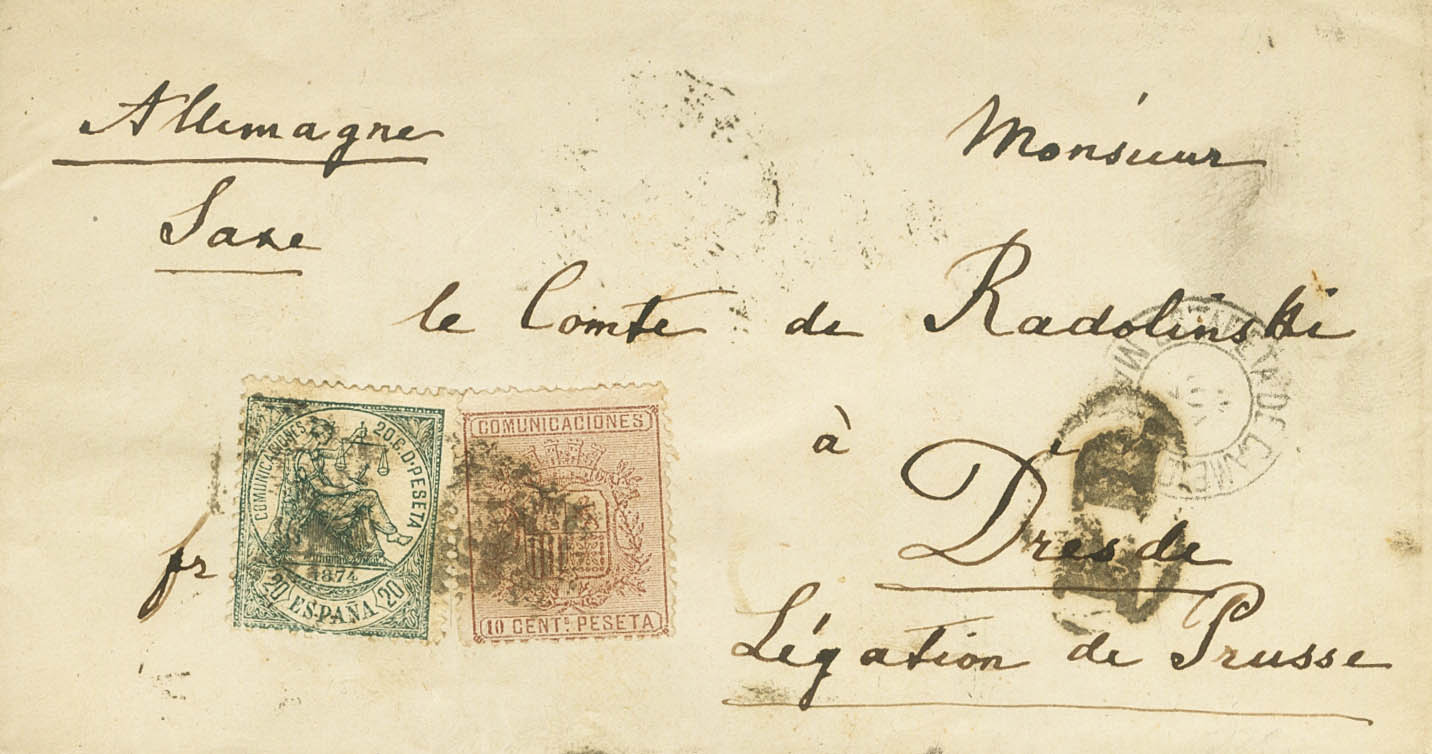 Allemagne
Saxe
Monsieur
le Comte de Radolinski
à
Dresde
Légation de Prusse
fr
COMUNICACIONES 20 C. D. PESETA
1874
20 ESPAÑA 20
COMUNICACIONES
10 CENT.S PESETA